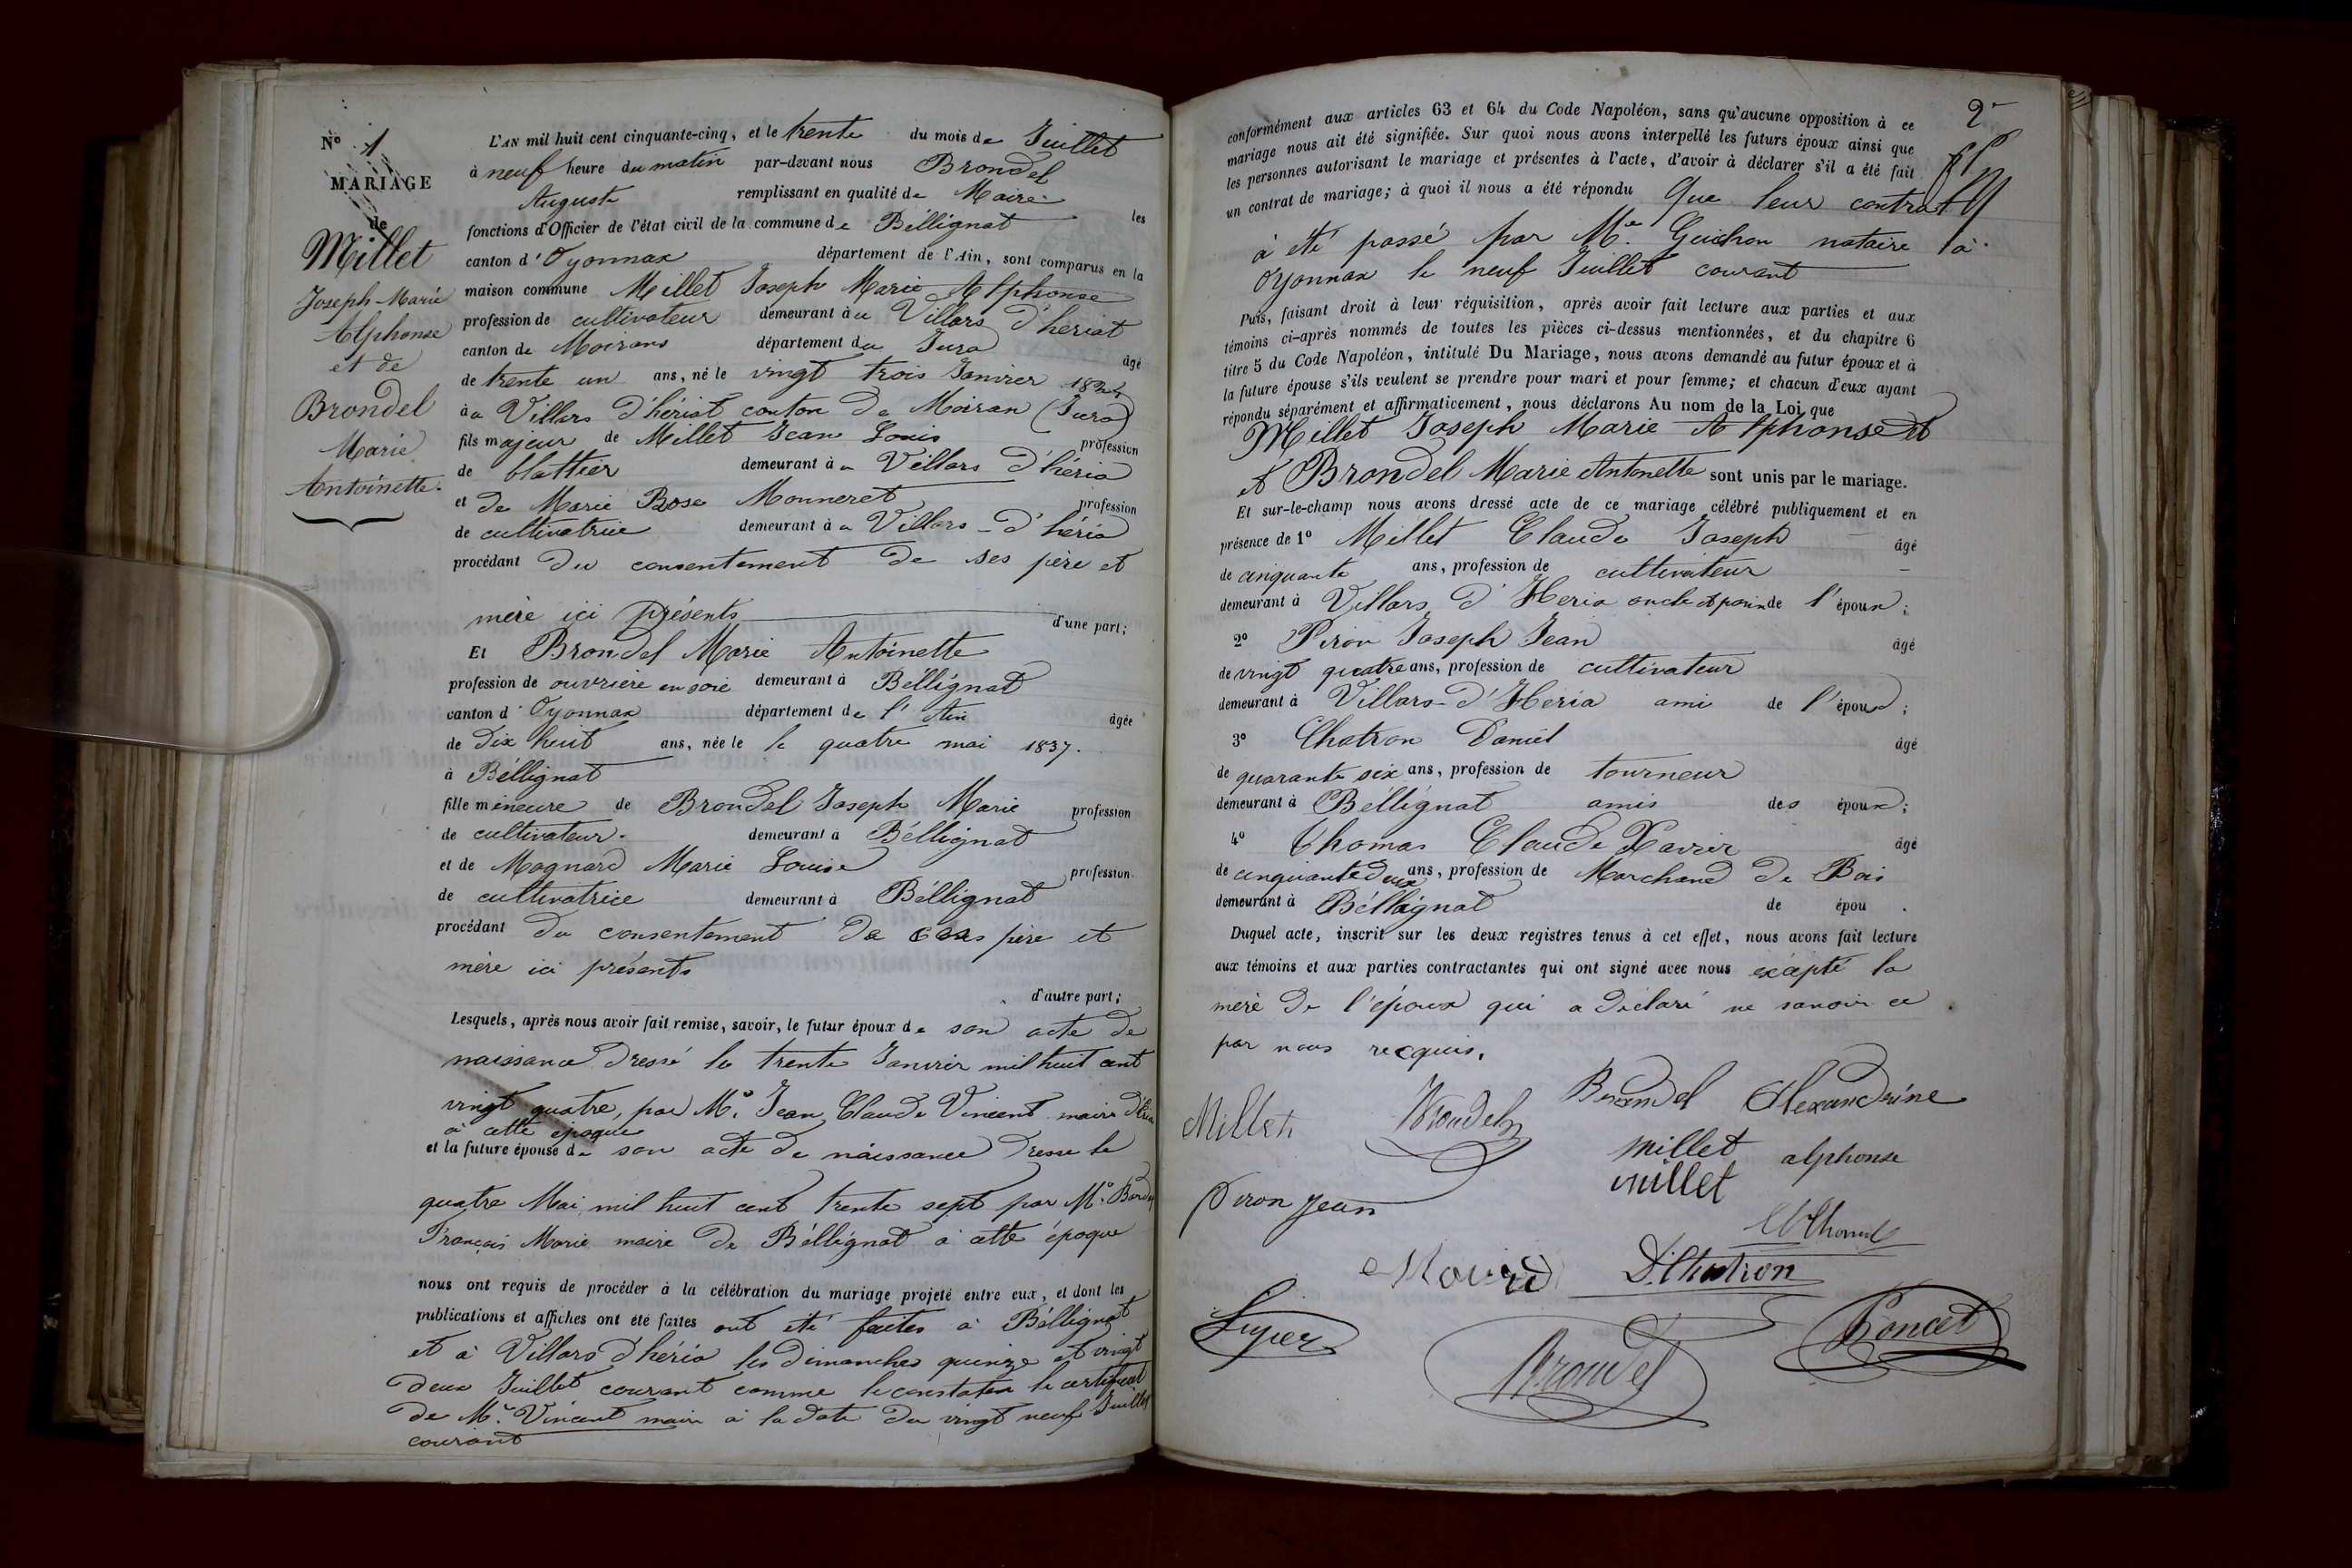 N° 1
MARIAGE
de
Millet
Joseph-Marie
Alphonse
et de
Brondel
Marie
Antoinette.
L'AN mil huit cent cinquante-cinq, et le trente du mois de Juillet
à neuf heure du matin par-devant nous Brondel
Auguste remplissant en qualité de Maire les
fonctions d'Officier de l'état civil de la commune de Béllignat
canton d'Oyonnax département de l'Ain, sont comparus en la
maison commune Millet Joseph Marie Alphonse
profession de cultivateur demeurant à Villars d'heriat
canton de Moirans département du Jura âgé
de trente un ans, né le vingt trois Janvier 1824
à Villars d'hériat canton de Moiran (Jura)
fils majeur de Millet Jean Louis profession
de demeurant à Villars d'héria
et de Marie Rose Monneret profession
de cultivatrice demeurant à Villars-d'héria
procédant du consentement de ses père et
mère ici présents d'une part;
Et Brondel Marie Antoinette
profession de ouvrière en soie demeurant à Béllignat
canton d'Oyonnax département de l'Ain âgée
de dix huit ans, née le le quatre mai 1837.
à Béllignat
fille mineure de Brondel Joseph Marie profession
de cultivateur. demeurant à Béllignat
et de Magnard Marie Louise profession
de cultivatrice demeurant à Béllignat
procédant du consentement de père et
mère ici présents
d'autre part;
Lesquels, après nous avoir fait remise, savoir, le futur époux de son acte de
naissance dressé le trente Janvier mil huit cent
vingt quatre, par Mr. Jean Claude Vincent maire
à cette époque
et la future épouse de son acte de naissance dressé le
quatre Mai mil huit cent trente sept par Mr.
François Marie maire de Béllignat à cette époque
nous ont requis de procéder à la célébration du mariage projeté entre eux, et dont les
publications et affiches ont été faites ont été faites à Béllignat
et à Villars d'héria les dimanches quinze et vingt
deux Juillet courant comme le constate le certificat
de Mr. Vincent maire à la date du vingt neuf Juillet
courant
2
conformément aux articles 63 et 64 du Code Napoléon, sans qu'aucune opposition à ce
mariage nous ait été signifiée. Sur quoi nous avons interpellé les futurs époux ainsi que
les personnes autorisant le mariage et présentes à l'acte, d'avoir à déclarer s'il a été fait
un contrat de mariage; à quoi il nous a été répondu Que leur contrat
à été passé par Me. Guichon notaire à
Oyonnax le neuf Juillet courant
Puis, faisant droit à leur réquisition, après avoir fait lecture aux parties et aux
témoins ci-après nommés de toutes les pièces ci-dessus mentionnées, et du chapitre 6
titre 5 du Code Napoléon, intitulé Du Mariage, nous avons demandé au futur époux et à
la future épouse s'ils veulent se prendre pour mari et pour femme; et chacun d'eux ayant
répondu séparément et affirmativement, nous déclarons Au nom de la Loi que
Millet Joseph Marie Alphonse et
et Brondel Marie Antonette sont unis par le mariage.
Et sur-le-champ nous avons dressé acte de ce mariage célébré publiquement et en
présence de 1° Millet Claude Joseph âgé
de cinquante ans, profession de cultivateur
demeurant à Villars d'Heria oncle et de l'époux;
2° Piron Joseph Jean âgé
de vingt quatre ans, profession de cultivateur
demeurant à Villars-d'Heria ami de l'époux;
3° Chatron Daniel âgé
de quarante six ans, profession de tourneur
demeurant à Béllignat amis des époux;
4° Thomas Claude Xavier âgé
de cinquante deux ans, profession de Marchand de Bois
demeurant à Béllignat de épou .
Duquel acte, inscrit sur les deux registres tenus à cet effet, nous avons fait lecture
aux témoins et aux parties contractantes qui ont signé avec nous excepté la
mère de l'époux qui a déclaré ne savoir ce
par nous recquis.
Millet Brondel Brondel Alexandrine
millet alphonse
millet
Piron Jean
D. Chatron
Brondel Poncet